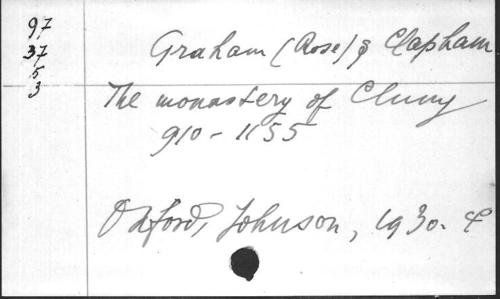 97
37
5
3
Graham (Rose) & Clapham
The monastery of Cluny
910-1155
Oxford, Johnson, 1930. 4